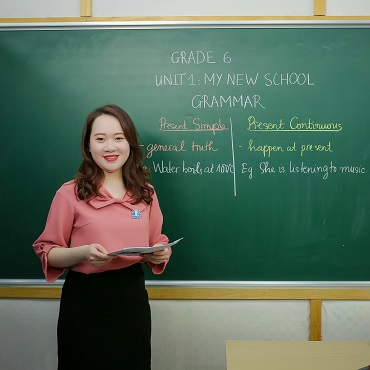 GRADE 6
UNIT 1: MY NEW SCHOOL
GRAMMAR
Present Simple
- general truth
Water boils at 100C
Present Continuous
- happen at present
Eg. She is listening to music.